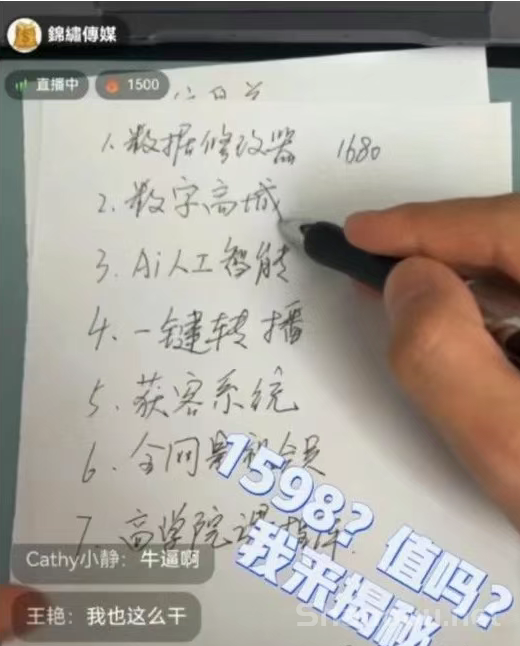 錦繡傳媒
直播中
1500
1. 数据修改器 1680
2. 数字商城
3. Ai人工智能
4. 一键转播
5. 获客系统
6. 全网影视会员
7. 商学院课
1598?值吗?
我来揭秘
Cathy小静：牛逼啊
王艳：我也这么干